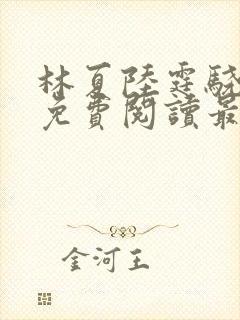 林夏陸霆驍
免費閱讀最
金河王